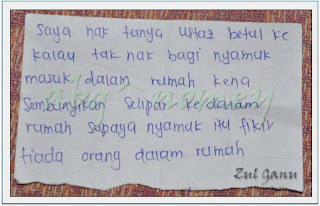 Saya nak tanya ustaz betul ke
kalau tak nak bagi nyamuk
masuk dalam rumah kena
Sembunyikan Selipar ke dalam
rumah Supaya nyamuk itu fikir
tiada orang dalam rumah
Zul Ganu